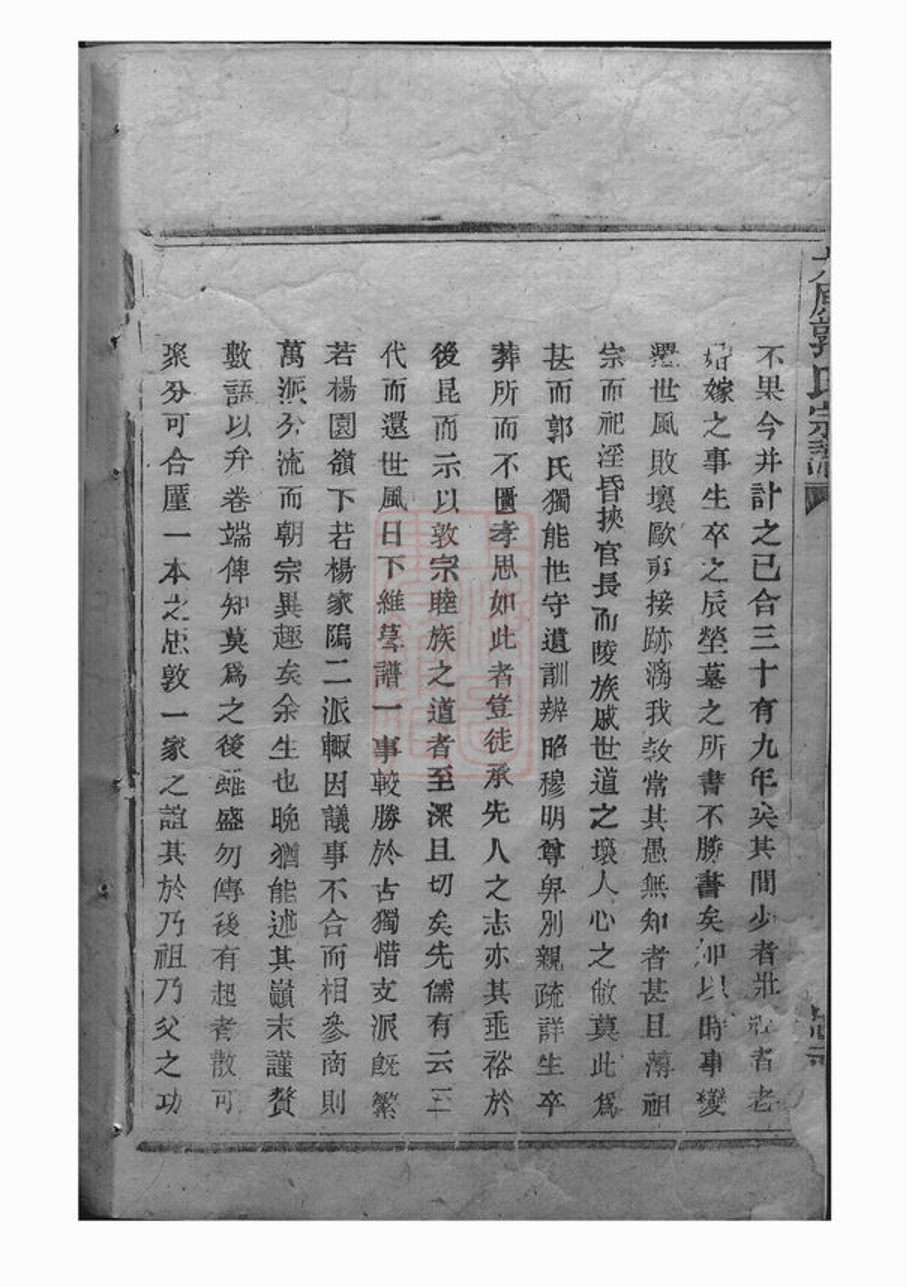 郭氏宗譜
不果今并計之已合三十有九年矣其間少者壯壯者老
婚嫁之事生卒之辰塋墓之所書不勝書矣加以時事變
遷世風敗壞歐東接跡漓我敎常其愚無知者甚且薄祖
宗而祀淫昏挾官長而陵族戚世道之壞人心之敝莫此爲
甚而郭氏獨能世守遺訓辨昭穆明尊卑别親疏詳生卒
葬所而不匱孝思如此者豈徒承先人之志亦其垂裕於
後昆而示以敦宗睦族之道者至深且切矣先儒有云三
代而還世風日下維葺譜一事較勝於古獨惜支派旣繁
若楊園嶺下若楊家隝二派輙因議事不合而相參商則
萬派分流而朝宗異趣矣余生也晚猶能述其巔末謹贅
數語以弁卷端俾知莫爲之後雖盛勿傳後有起者散可
聚分可合厪一本之思敦一家之誼其於乃祖乃父之功